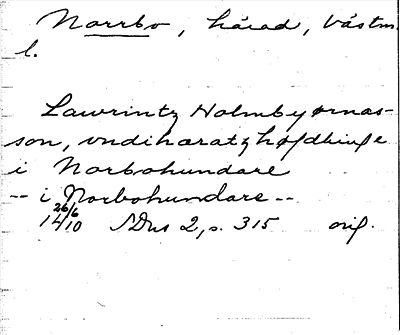 Norrbo, härad, Västm.
l.
Lawrintz Holmbyørnas-
son, vndihæratzhøfdhinge
i Norbohundare
-- i Norbohundare --
26/6
1410 SDns 2, s. 315 orig.